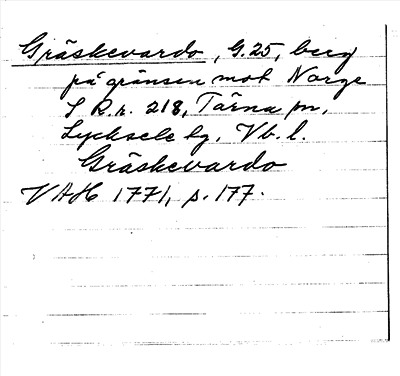 Gräskevardo, G.25, berg
på gränsen mot Norge
S R.r. 218, Tärna sn,
Lycksele lg. Vb. l.
Gräskevardo
VAH 1771, s. 177.